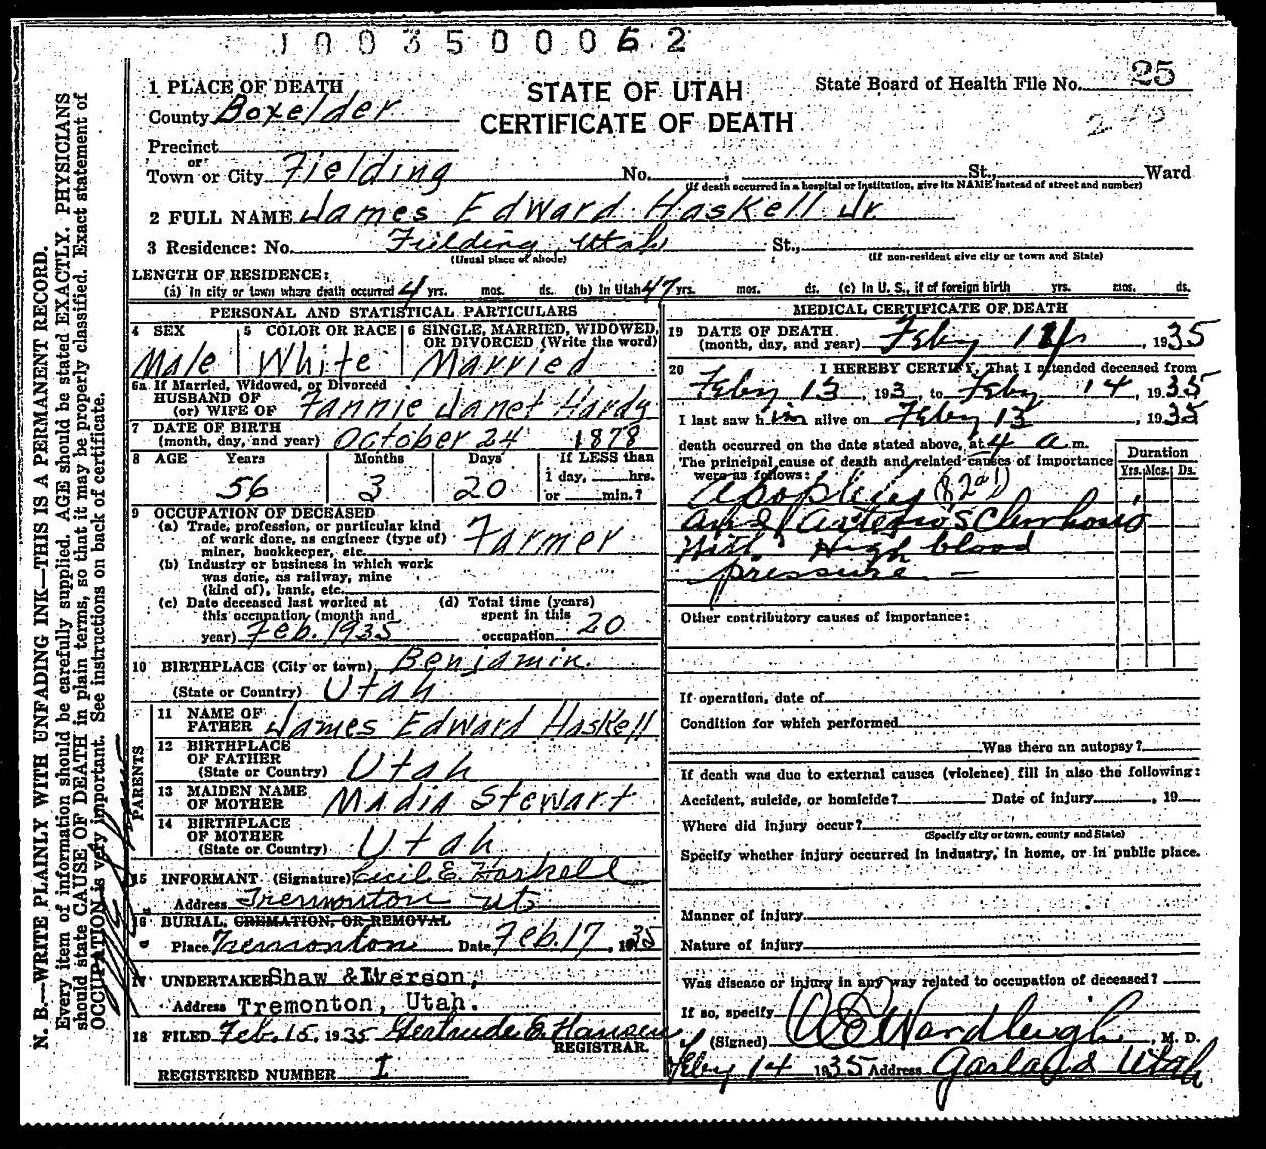 J 0 0 3 5 0 0 0 6 2
1 PLACE OF DEATH
STATE OF UTAH
CERTIFICATE OF DEATH
State Board of Health File No. 25
County Boxelder
Precinct
or
Town or City Fielding No. , St., Ward
(If death occurred in a hospital or institution, give its NAME instead of street and number)
2 FULL NAME James Edward Haskell Jr
3 Residence: No. Fielding, Utah St.,
(Usual place of abode) (If non-resident give city or town and State)
LENGTH OF RESIDENCE:
(a) In city or town where death occurred 4 yrs. mos. ds. (b) In Utah 47 yrs. mos. ds. (c) In U. S., if of foreign birth yrs. mos. ds.
PERSONAL AND STATISTICAL PARTICULARS
4 SEX 5 COLOR OR RACE 6 SINGLE, MARRIED, WIDOWED, OR DIVORCED (Write the word)
Male White Married
6a If Married, Widowed, or Divorced
HUSBAND OF
(or) WIFE OF Fannie Janet Hardy
7 DATE OF BIRTH
(month, day, and year) October 24 1878
8 AGE Years Months Days If LESS than
1 day, hrs.
56 3 20 or min.?
9 OCCUPATION OF DECEASED
(a) Trade, profession, or particular kind
of work done, as engineer (type of)
miner, bookkeeper, etc. Farmer
(b) Industry or business in which work
was done, as railway, mine
(kind of), bank, etc.
(c) Date deceased last worked at
this occupation (month and
year) Feb. 1935
(d) Total time (years)
spent in this
occupation 20
10 BIRTHPLACE (City or town) Benjamin
(State or Country) Utah
PARENTS
11 NAME OF
FATHER James Edward Haskell
12 BIRTHPLACE
OF FATHER
(State or Country) Utah
13 MAIDEN NAME
OF MOTHER Madia Stewart
14 BIRTHPLACE
OF MOTHER
(State or Country) Utah
15 INFORMANT (Signature) Cecil E. Haskell
Address Tremonton Ut
16 BURIAL, CREMATION, OR REMOVAL
Place Tremonton Date Feb. 17, 1935
17 UNDERTAKER Shaw & Iverson,
Address Tremonton, Utah.
18 FILED Feb. 15, 1935 Gertrude E. Hansen
REGISTRAR.
REGISTERED NUMBER I
MEDICAL CERTIFICATE OF DEATH
19 DATE OF DEATH
(month, day, and year) Feby , 1935
20 I HEREBY CERTIFY, That I attended deceased from
Feby 13, 193 to Feby 14, 1935
I last saw him alive on Feby 13, 1935
death occurred on the date stated above, at 4 a m.
The principal cause of death and related causes of importance
were as follows:
Duration
Yrs. Mos. Ds.
Apoplexy (82a1)
and
With High blood
pressure —
Other contributory causes of importance:
If operation, date of
Condition for which performed
Was there an autopsy?
If death was due to external causes (violence) fill in also the following:
Accident, suicide, or homicide? Date of injury , 19
Where did injury occur?
(Specify city or town, county and State)
Specify whether injury occurred in industry, in home, or in public place.
Manner of injury
Nature of injury
Was disease or injury in any way related to occupation of deceased?
If so, specify
(Signed) Wardleigh, M. D.
Feby 14 1935 Address Garland Utah
N. B.—WRITE PLAINLY WITH UNFADING INK—THIS IS A PERMANENT RECORD.
Every item of information should be carefully supplied. AGE should be stated EXACTLY. PHYSICIANS
should state CAUSE OF DEATH in plain terms, so that it may be properly classified. Exact statement of
OCCUPATION is very important. See instructions on back of certificate.